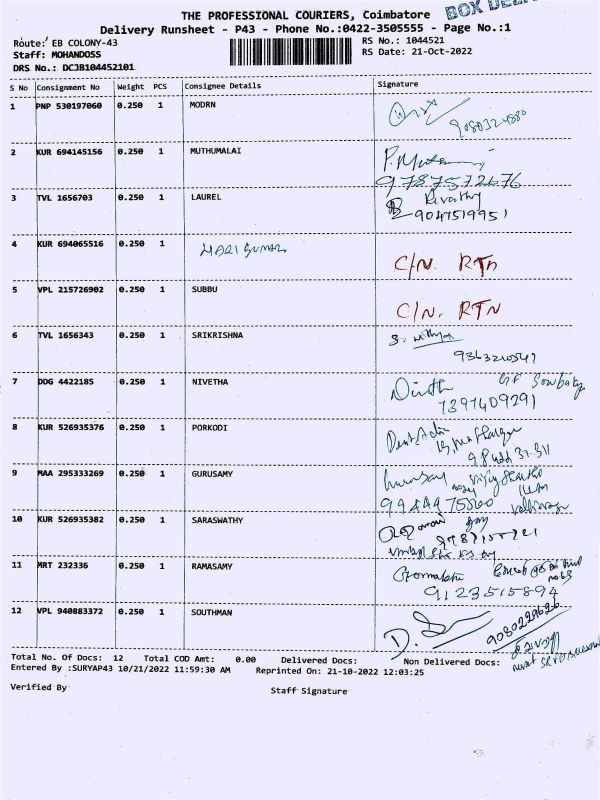 THE PROFESSIONAL COURIERS, Coimbatore BOX
Delivery Runsheet - P43 - Phone No.:0422-3505555 - Page No.:1
Route: EB COLONY-43
RS No.: 1044521
Staff: MOHANDOSS
RS Date: 21-Oct-2022
DRS No.: DCJB104452101
S No Consignment No Weight PCS Consignee Details Signature
1 PNP 530197060 0.250 1 MODRN
2 KUR 694145156 0.250 1 MUTHUMALAI
9787572676
3 TVL 1656703 0.250 1 LAUREL Revathy
9047519951
4 KUR 694065516 0.250 1 HARI KUMAR C/N. RTN
5 VPL 215726902 0.250 1 SUBBU C/N. RTN
6 TVL 1656343 0.250 1 SRIKRISHNA S. Nithya
7 DDG 4422185 0.250 1 NIVETHA
7397409291
8 KUR 526935376 0.250 1 PORKODI
9 MAA 295333269 0.250 1 GURUSAMY
10 KUR 526935382 0.250 1 SARASWATHY
11 MRT 232336 0.250 1 RAMASAMY
9123515894
12 VPL 940883372 0.250 1 SOUTHMAN
9080229626
Total No. Of Docs: 12 Total COD Amt: 0.00 Delivered Docs: Non Delivered Docs:
Entered By :SURYAP43 10/21/2022 11:59:30 AM Reprinted On: 21-10-2022 12:03:25
Verified By Staff Signature